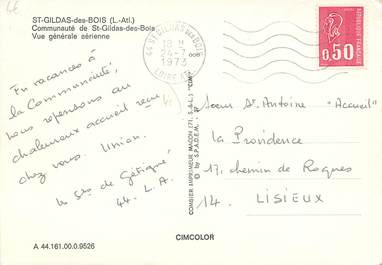 ST-GILDAS-des-BOIS (L.-Atl.)
Communauté de St-Gildas-des-Bois
Vue générale aérienne
44 ST GILDAS DES BOIS
18 H
24-7
1973
LOIRE
0,50
En vacances à
la Communauté,
nous repensons au
chaleureux accueil reçu
chez vous. Union.
de Gétigné
44. L.A.
Soeur St Antoine "Accueil"
La Providence
17, chemin de Roques
14. LISIEUX
COMBIER IMPRIMEUR MACON (71. S.-&-L.) "CIM"
© by S.P.A.D.E.M.
CIMCOLOR
A 44.161.00.0.9526